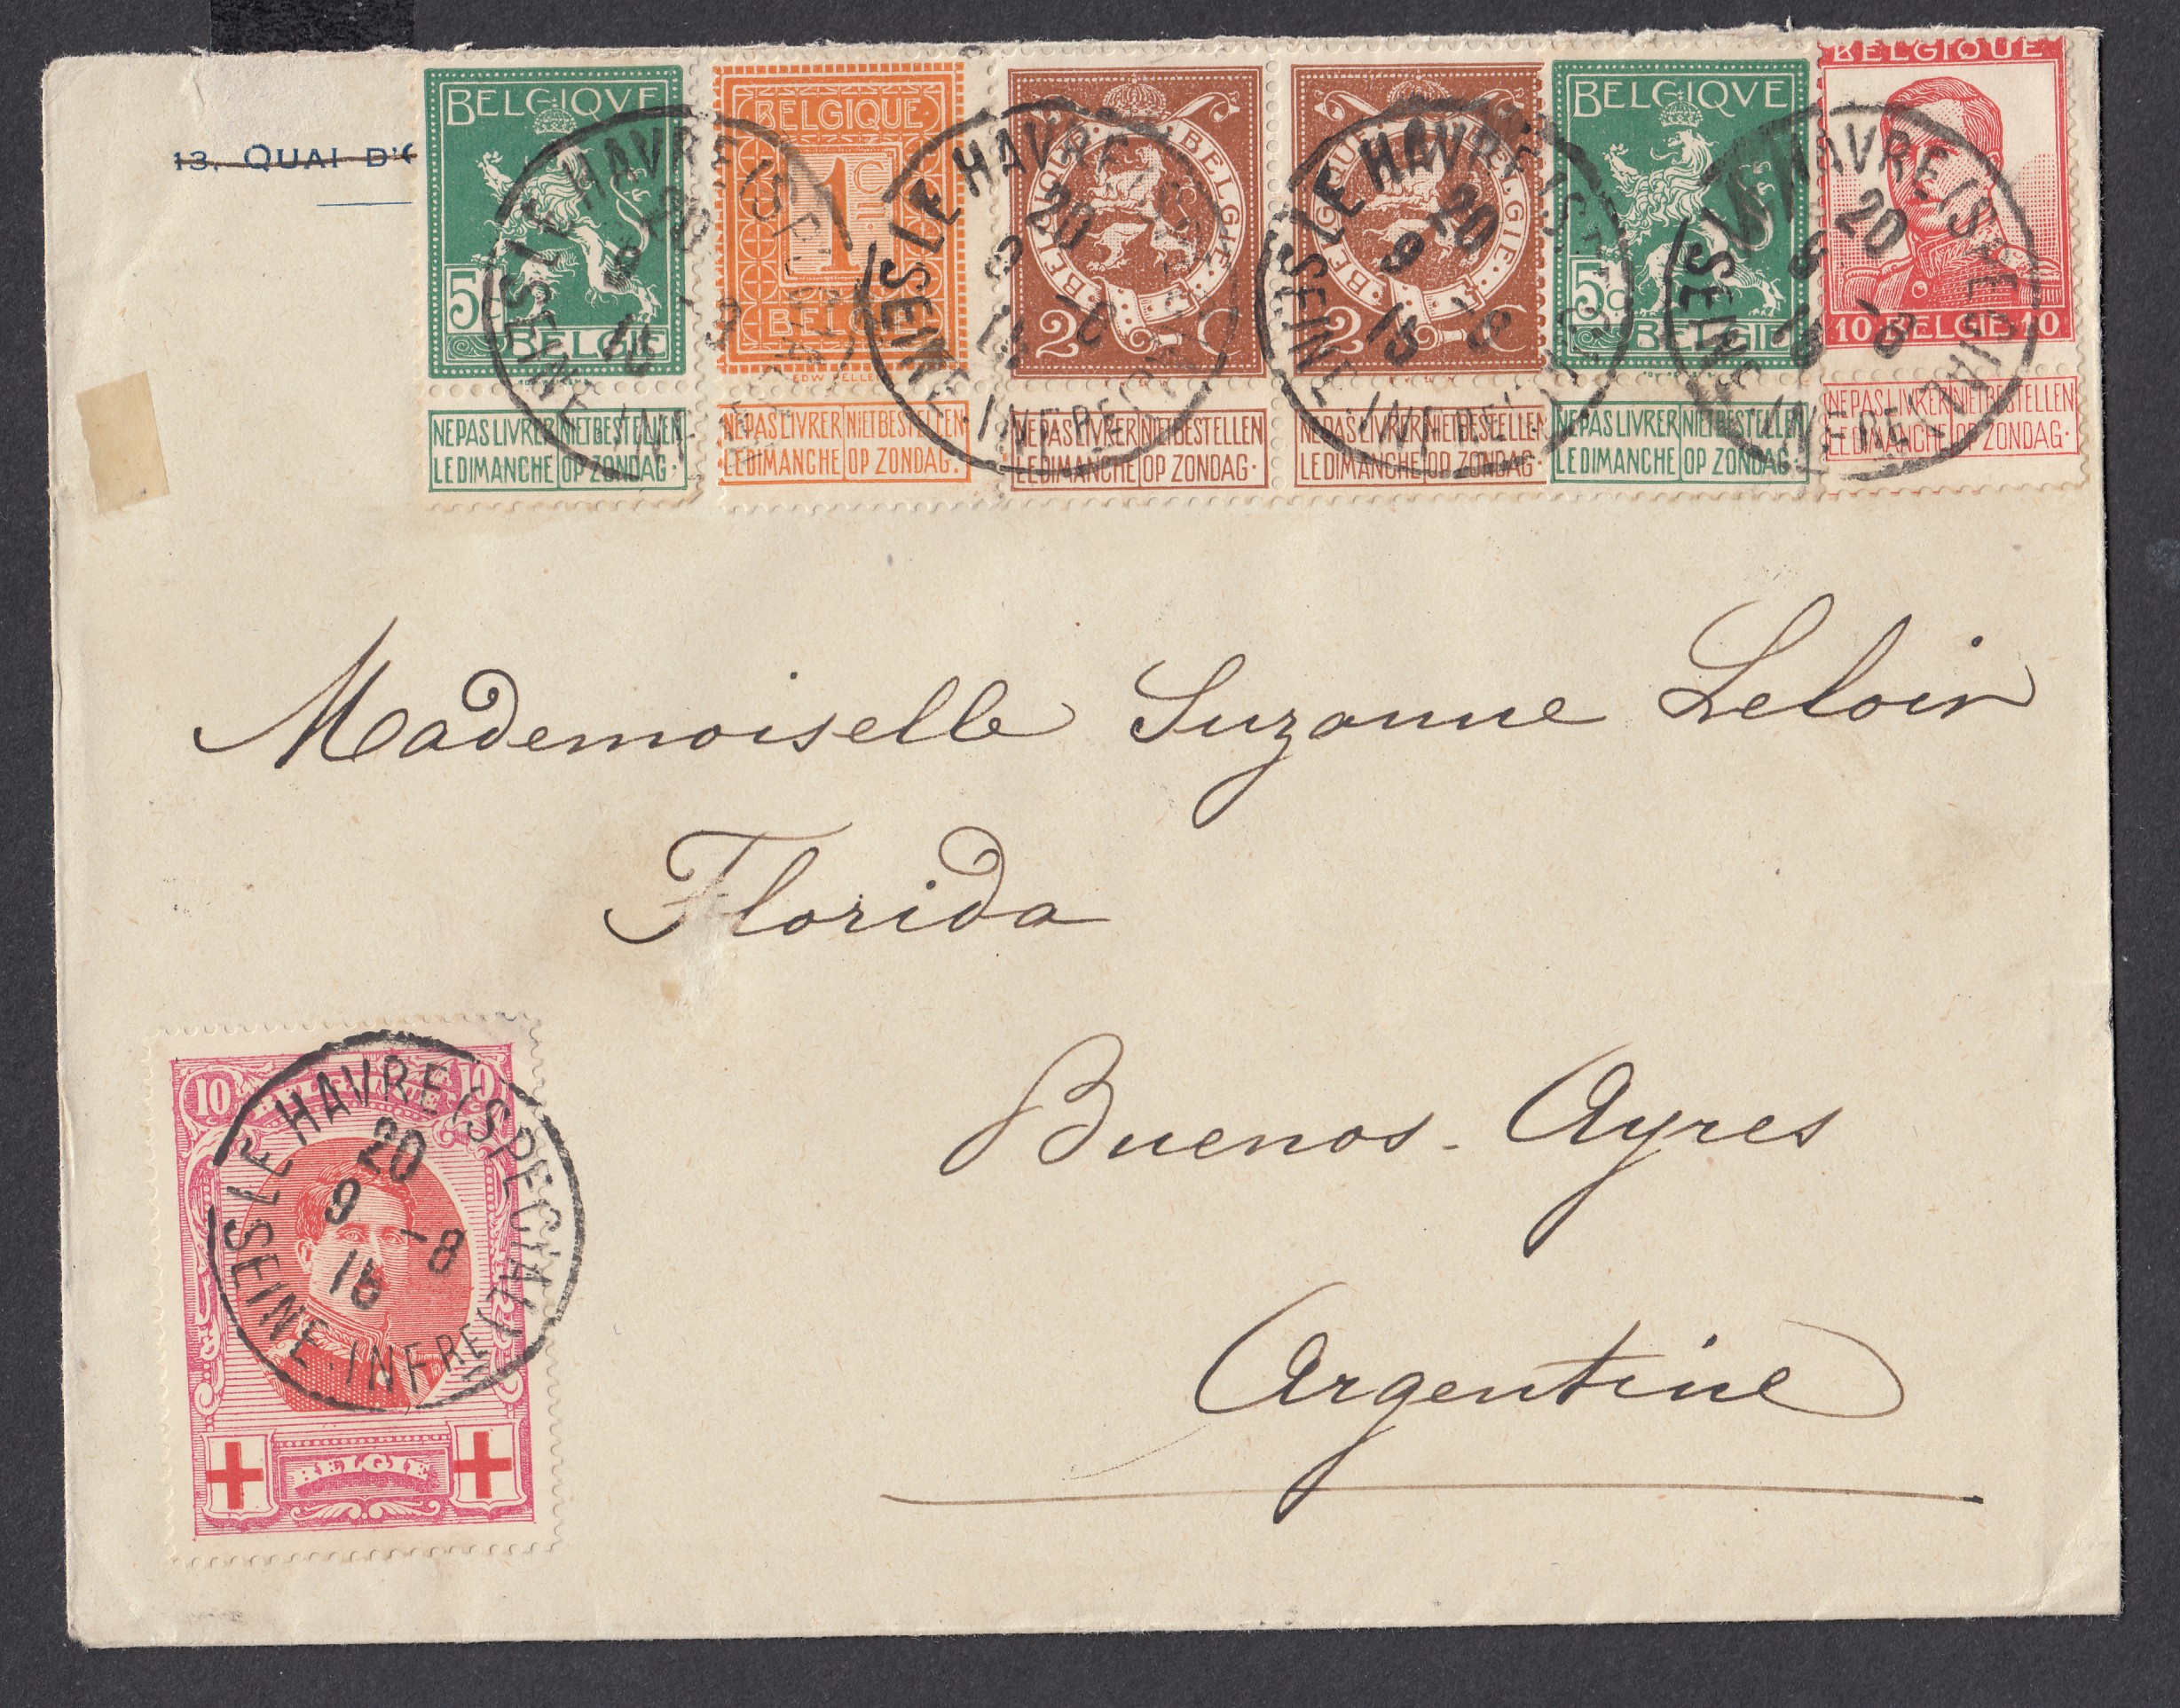 13, QUAI D'
BELGIQVE
5c
BELGIE
NE PAS LIVRER LE DIMANCHE
NIET BESTELLEN OP ZONDAG.
BELGIQUE
1c
BELGIE
NE PAS LIVRER LE DIMANCHE
NIET BESTELLEN OP ZONDAG.
BELGIQUE · BELGIE
2 C
NE PAS LIVRER LE DIMANCHE
NIET BESTELLEN OP ZONDAG.
BELGIQUE · BELGIE
2 C
NE PAS LIVRER LE DIMANCHE
NIET BESTELLEN OP ZONDAG.
BELGIQVE
5c
BELGIE
NE PAS LIVRER LE DIMANCHE
NIET BESTELLEN OP ZONDAG.
BELGIQUE
10 BELGIE 10
NE PAS LIVRER LE DIMANCHE
NIET BESTELLEN OP ZONDAG.
LE HAVRE (SPECIAL)
20
9 -8
SEINE-INFRE
LE HAVRE (SPECIAL)
20
9 -8
SEINE-INFRE
LE HAVRE (SPECIAL)
20
9 -8
SEINE-INFRE
LE HAVRE (SPECIAL)
20
9 -8
SEINE-INFRE
Mademoiselle Suzanne Leloir
Florida
Buenos-Ayres
Argentine
10 BELGIQUE 10
BELGIE
LE HAVRE (SPECIAL)
20
9 -8
SEINE-INFRE